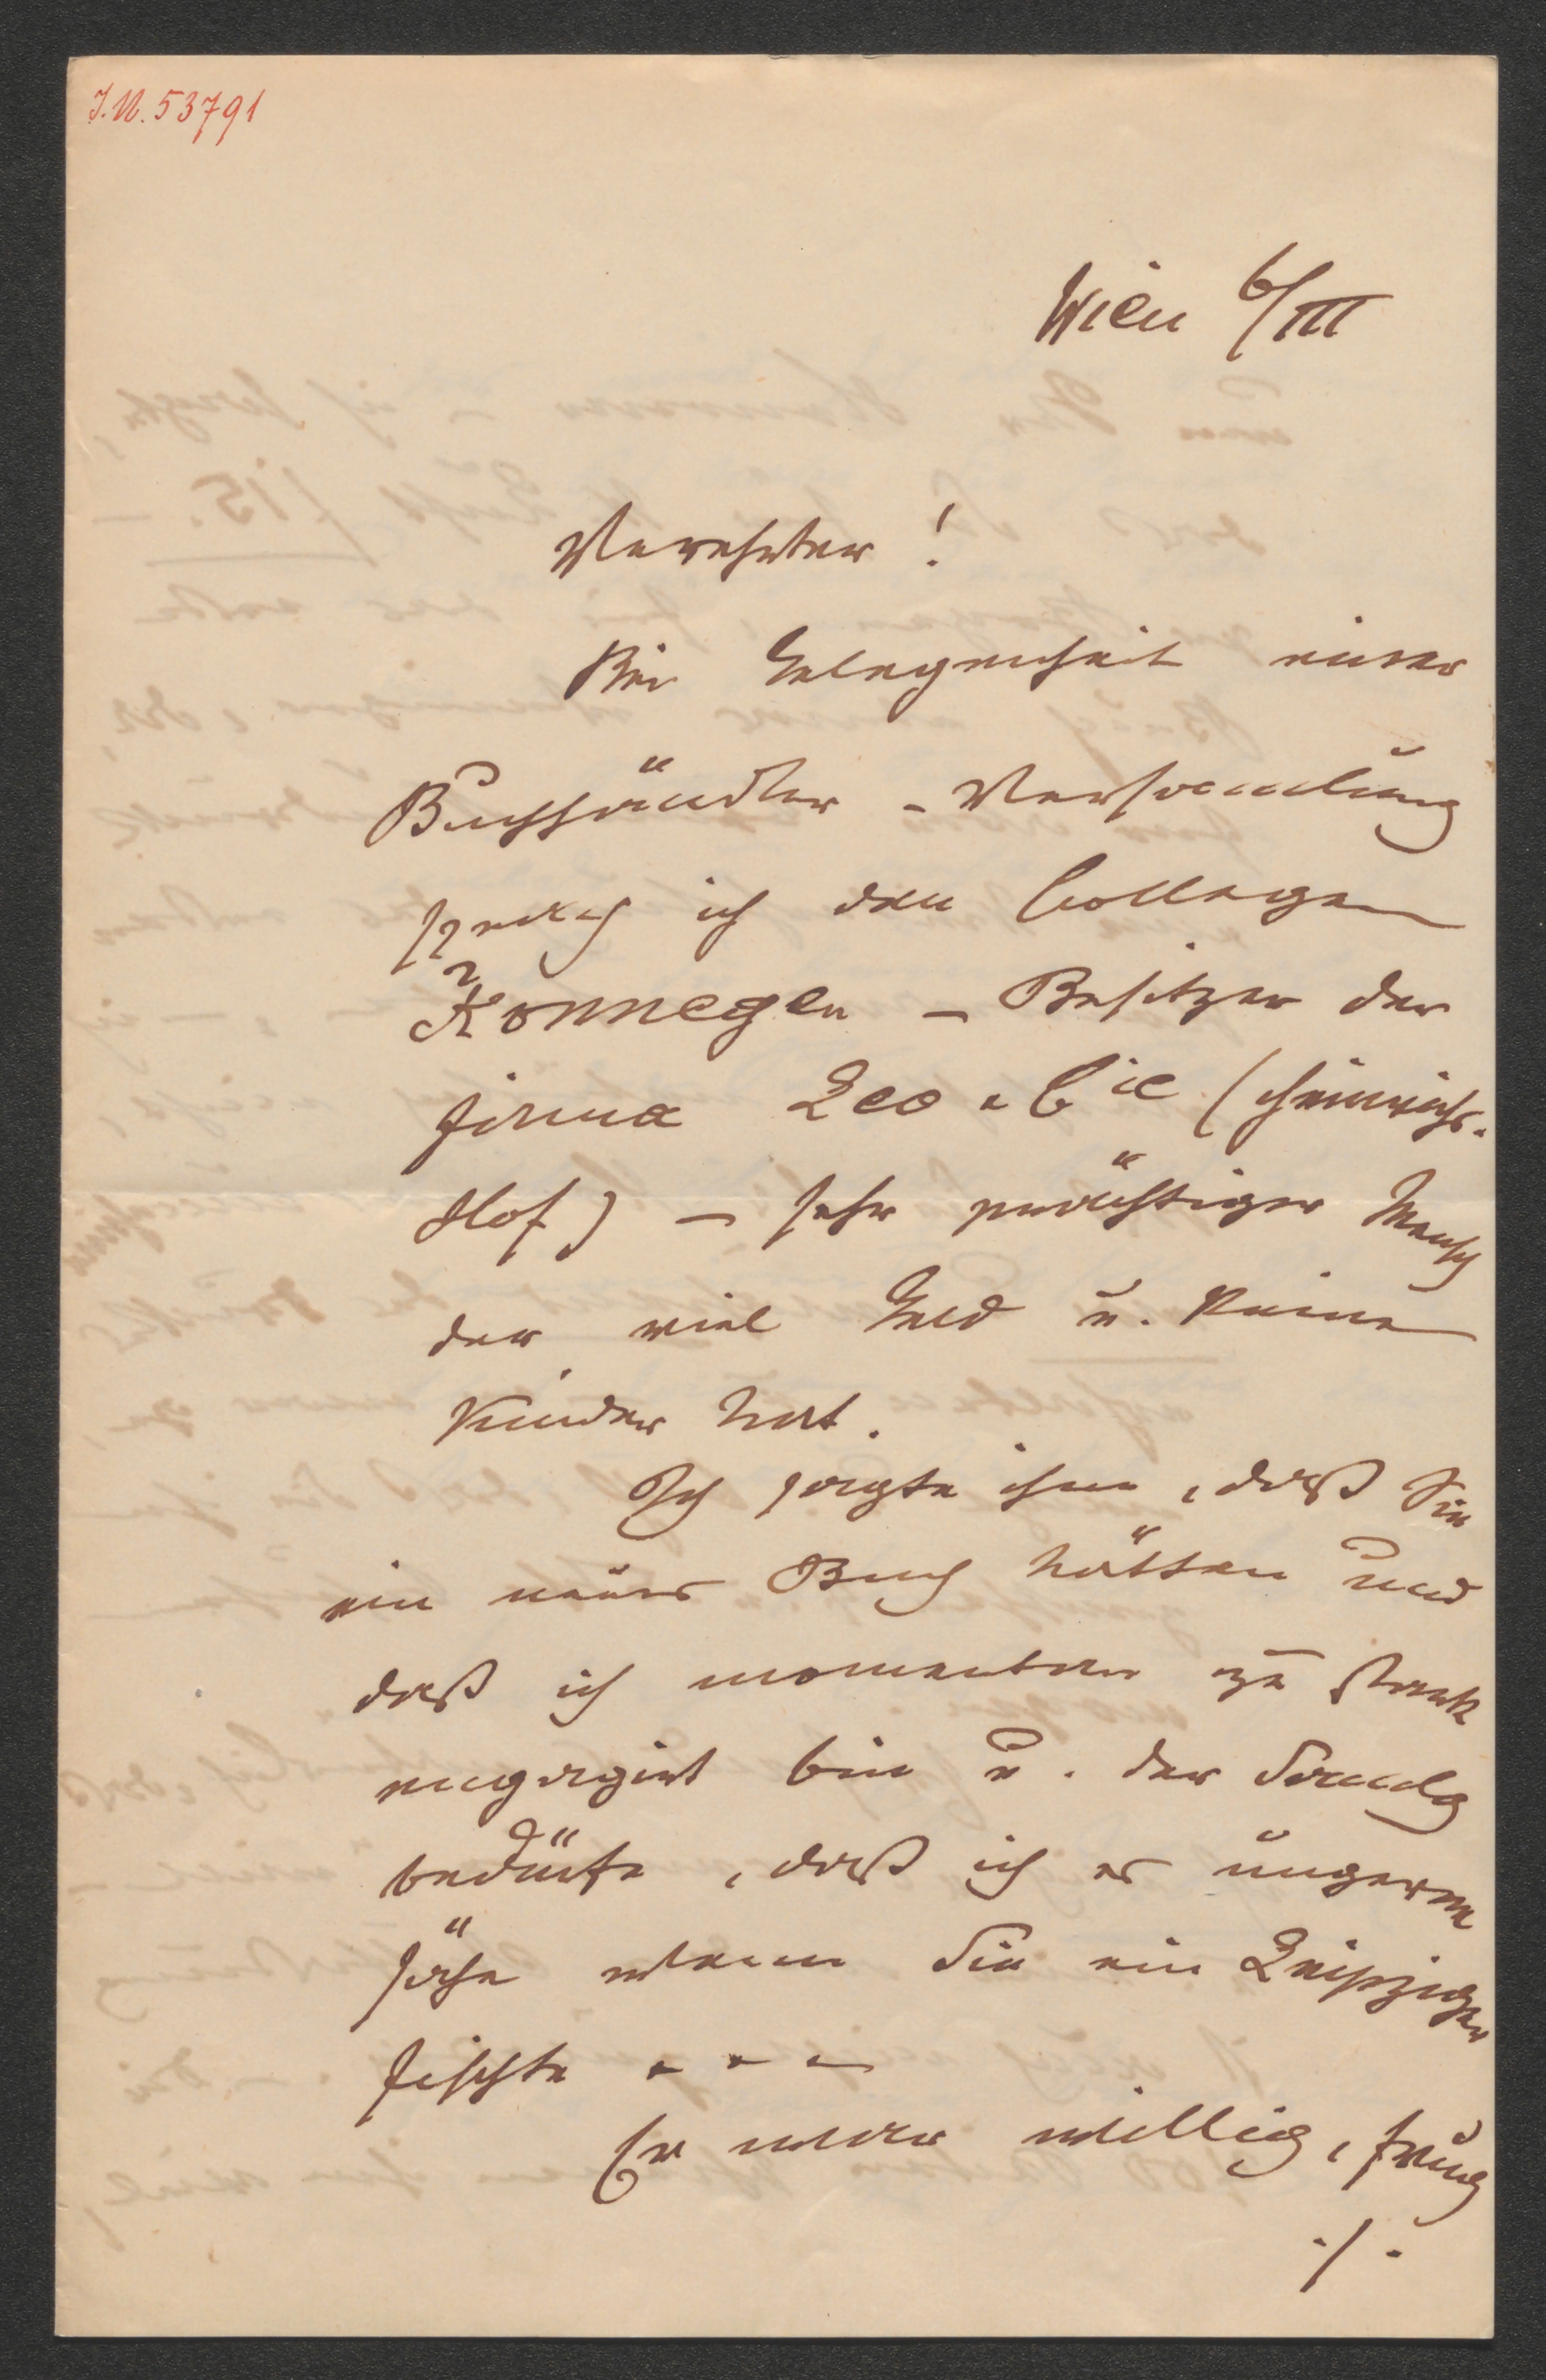 I.N. 53791
Wien 6/III
Verehrter!
Bei Gelegenheit einer
Buchhändler-Versamlung
sprach ich den Collegen
Konnegen – Besitzer der
Firma Leo & Cie (Heinrichs-
Hof) – sehr prächtiger Mensch
der viel Geld u. keine
Kinder hat.
Ich sagte ihm, daß Sie
ein neues Buch hätten und
daß ich momentan zu stark
engagirt bin u. der Samlg
bedürfe, daß ich es ungerne
sähe wenn Sie ein Leipziger
fischte . . .
Er war willig, frug
./.